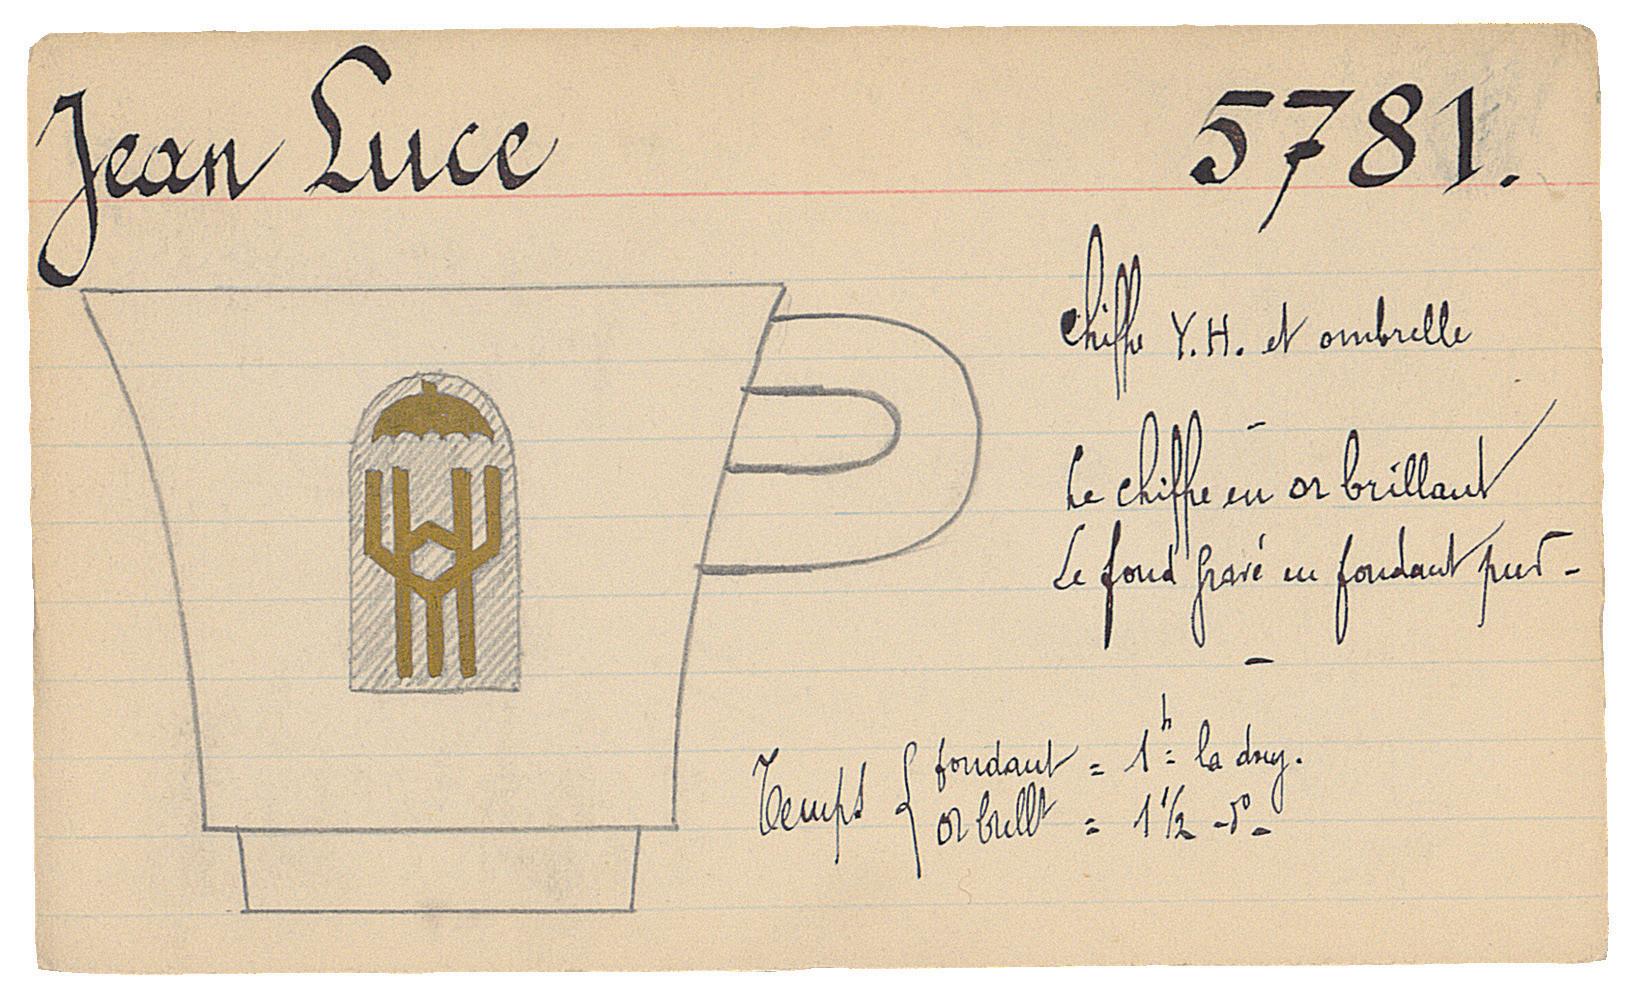 Jean Luce
5781.
Chiffre Y.H. et ombrelle
Le chiffre en or brillant
Le fond gravé en fondant
Temps { fondant = 1h = la douz.
or brillt = 1h1/2 - do -